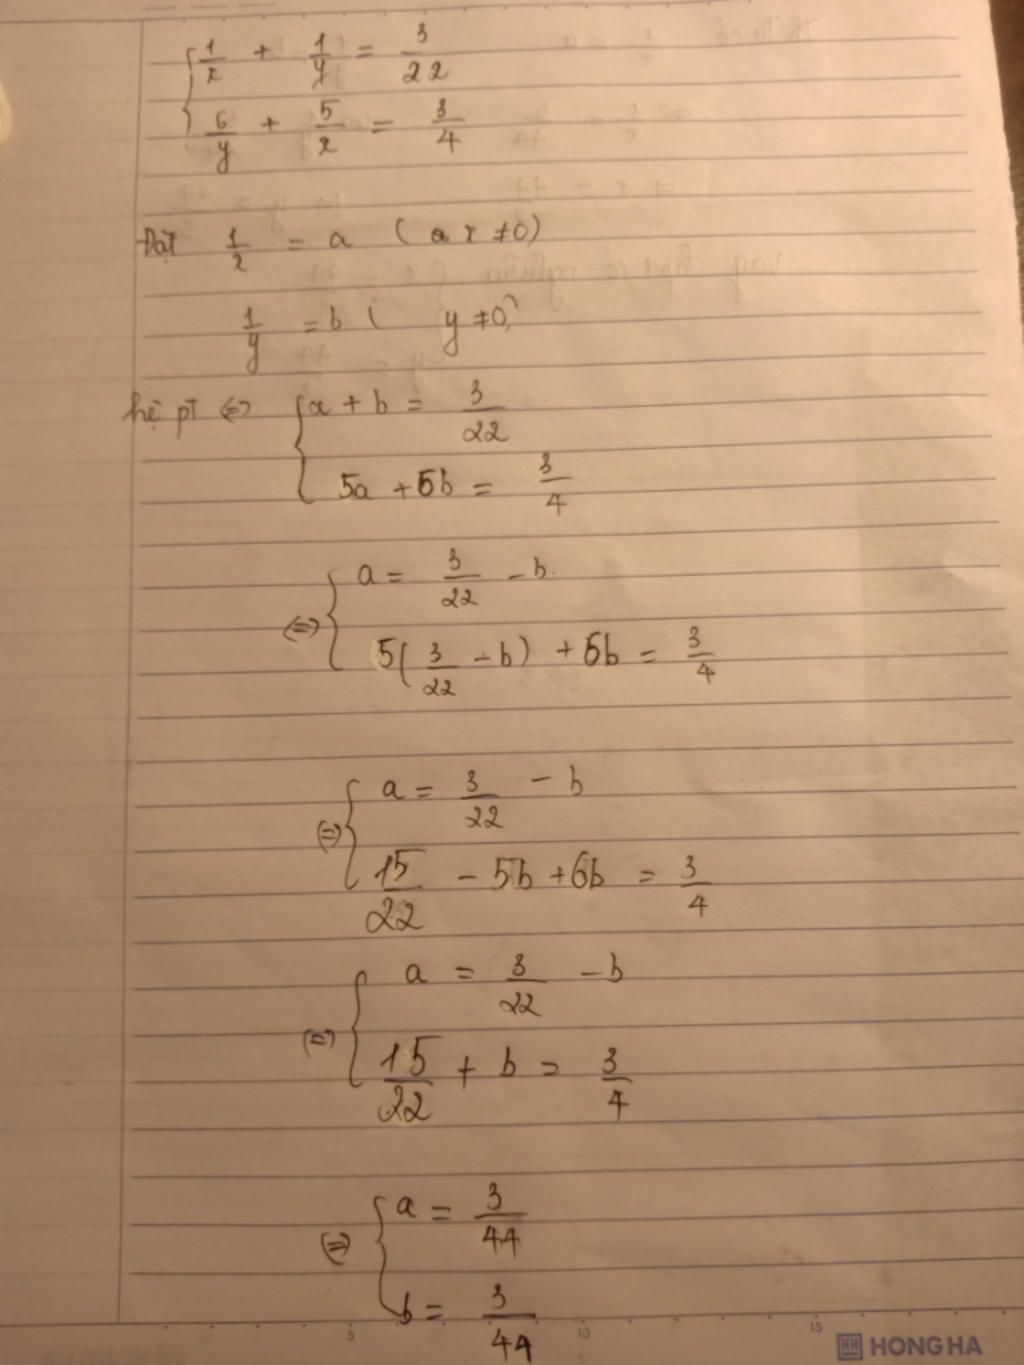 1/x + 1/y = 3/22
6/y + 5/x = 3/4
Đặt 1/x = a ( x ≠ 0)
1/y = b ( y ≠ 0)
hệ pt ⇔ a + b = 3/22
5a + 6b = 3/4
⇔ a = 3/22 - b
5(3/22 - b) + 6b = 3/4
⇔ a = 3/22 - b
15/22 - 5b + 6b = 3/4
⇔ a = 3/22 - b
15/22 + b = 3/4
⇔ a = 3/44
b = 3/44
5 10 15
HONG HA